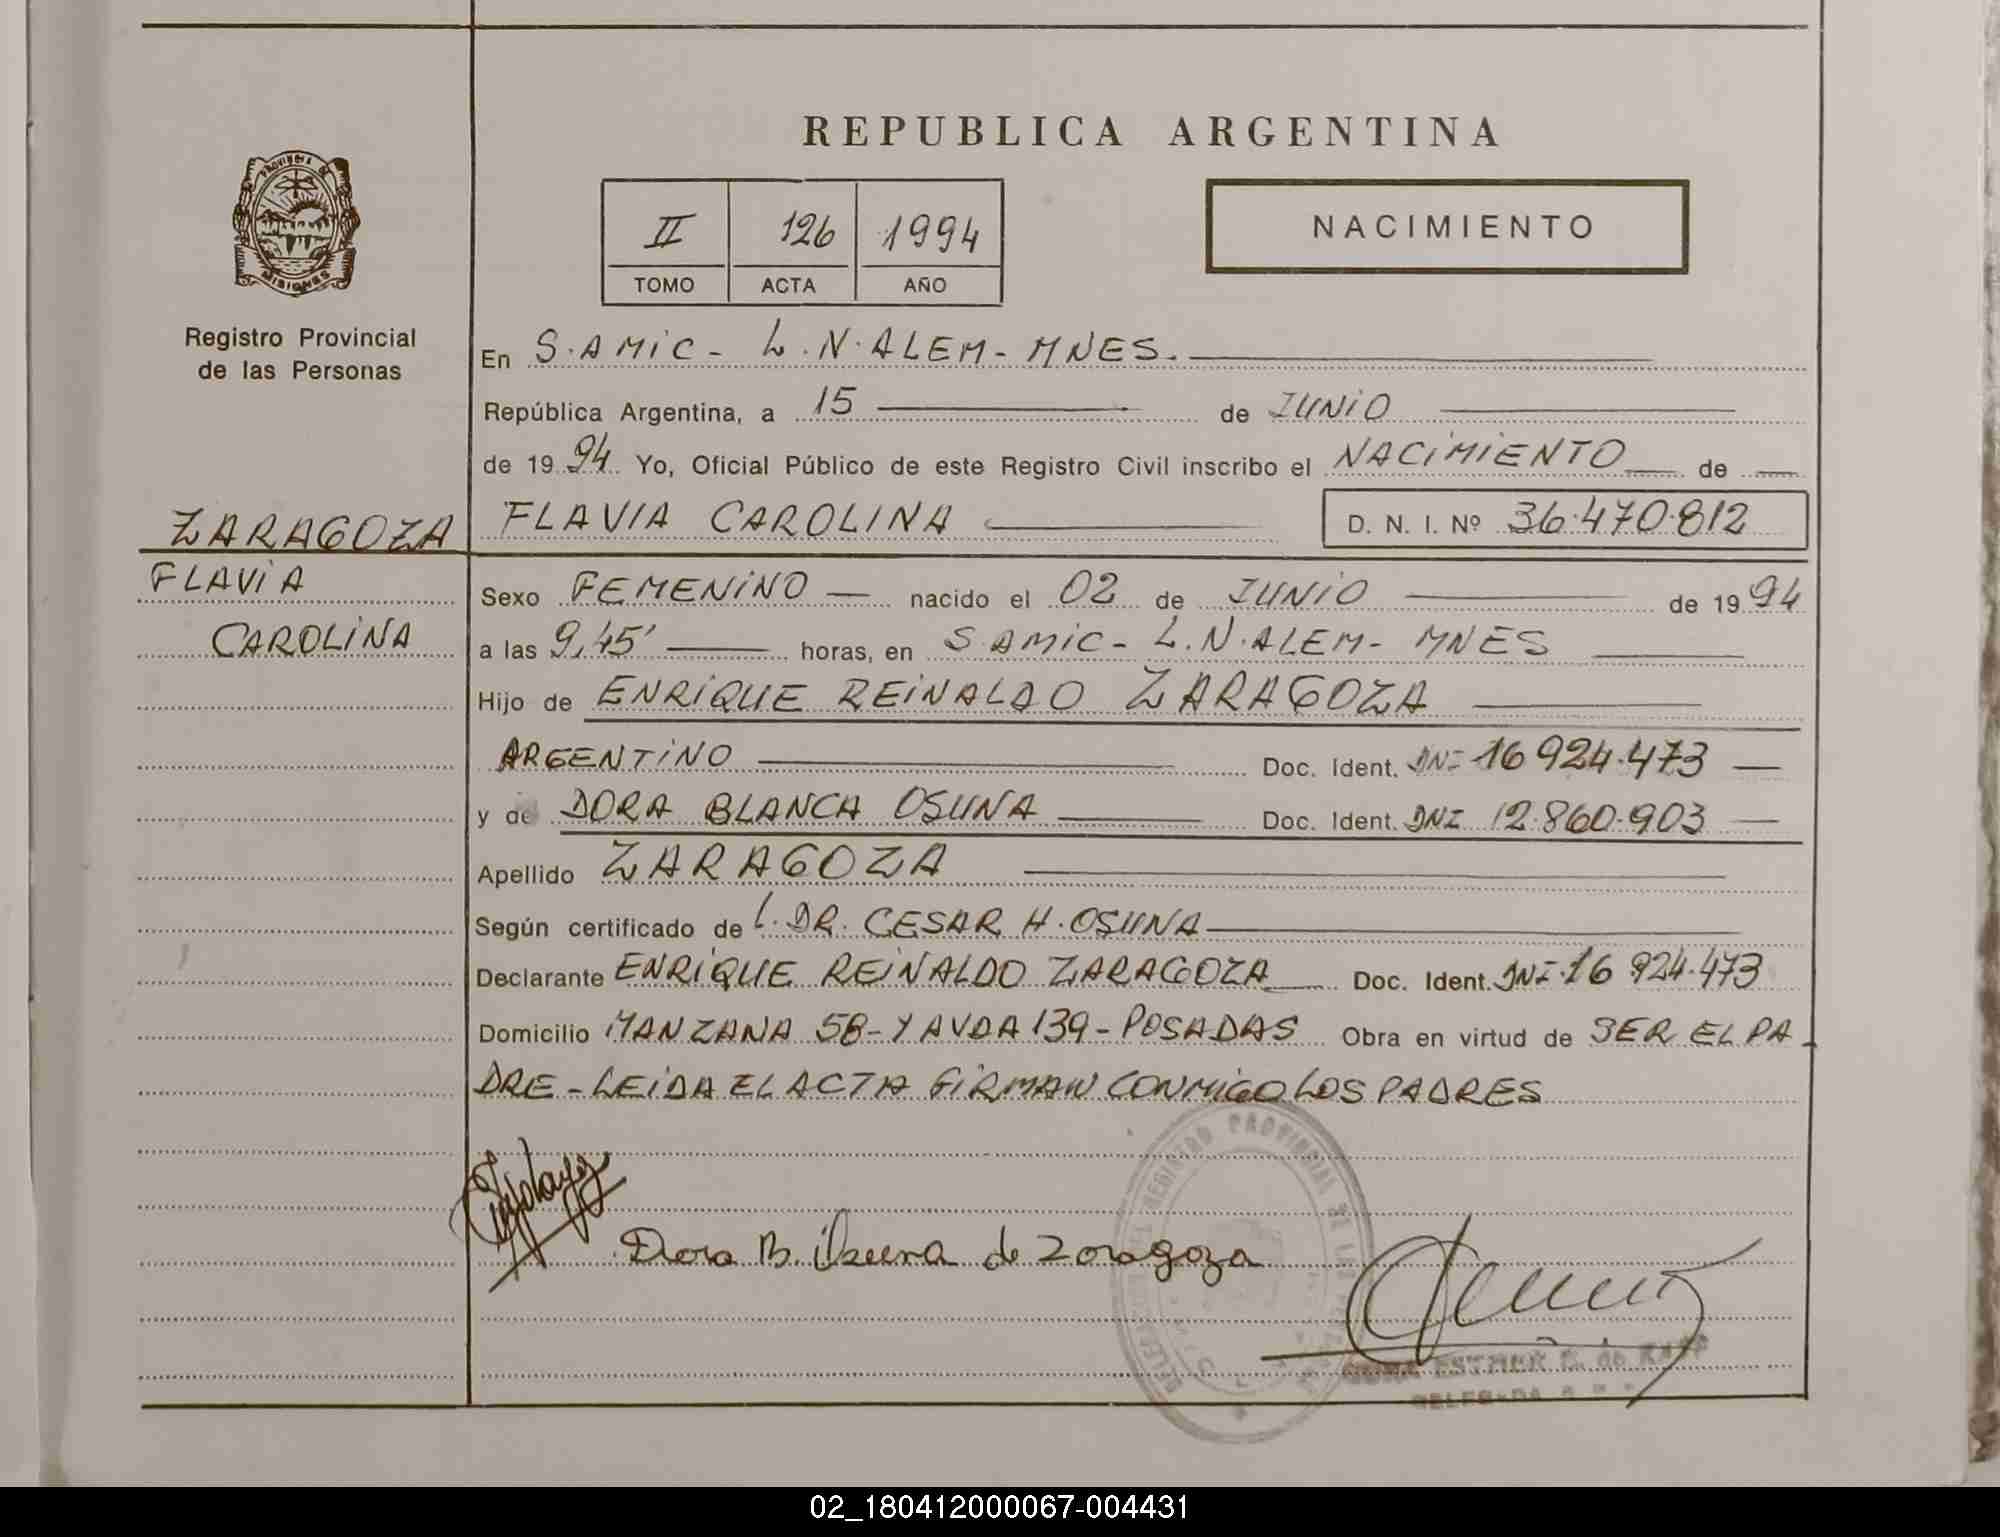 REPUBLICA ARGENTINA
PROVINCIA DE
MISIONES
Registro Provincial
de las Personas
II 126 1994
TOMO ACTA AÑO
NACIMIENTO
En S.AMIC - L.N.ALEM - MNES.
República Argentina, a 15 de JUNIO
de 1994 Yo, Oficial Público de este Registro Civil inscribo el NACIMIENTO de
ZARAGOZA
FLAVIA
CAROLINA
FLAVIA CAROLINA D. N. I. Nº 36.470.812
Sexo FEMENINO nacido el 02 de JUNIO de 1994
a las 9,45' horas, en S.AMIC - L.N.ALEM - MNES
Hijo de ENRIQUE REINALDO ZARAGOZA
ARGENTINO Doc. Ident. DNI 16 924.473
y de DORA BLANCA OSUNA Doc. Ident. DNI 12.860.903
Apellido ZARAGOZA
Según certificado de l. DR. CESAR H. OSUNA
Declarante ENRIQUE REINALDO ZARAGOZA Doc. Ident. DNI.16 924.473
Domicilio MANZANA 58 - Y AVDA 139 - POSADAS Obra en virtud de SER EL PA
DRE - LEIDA EL ACTA FIRMAN CONMIGO LOS PADRES
Dora B. Osuna de Zaragoza
REGISTRO PROVINCIAL DE LAS
ESTHER
02_180412000067-004431